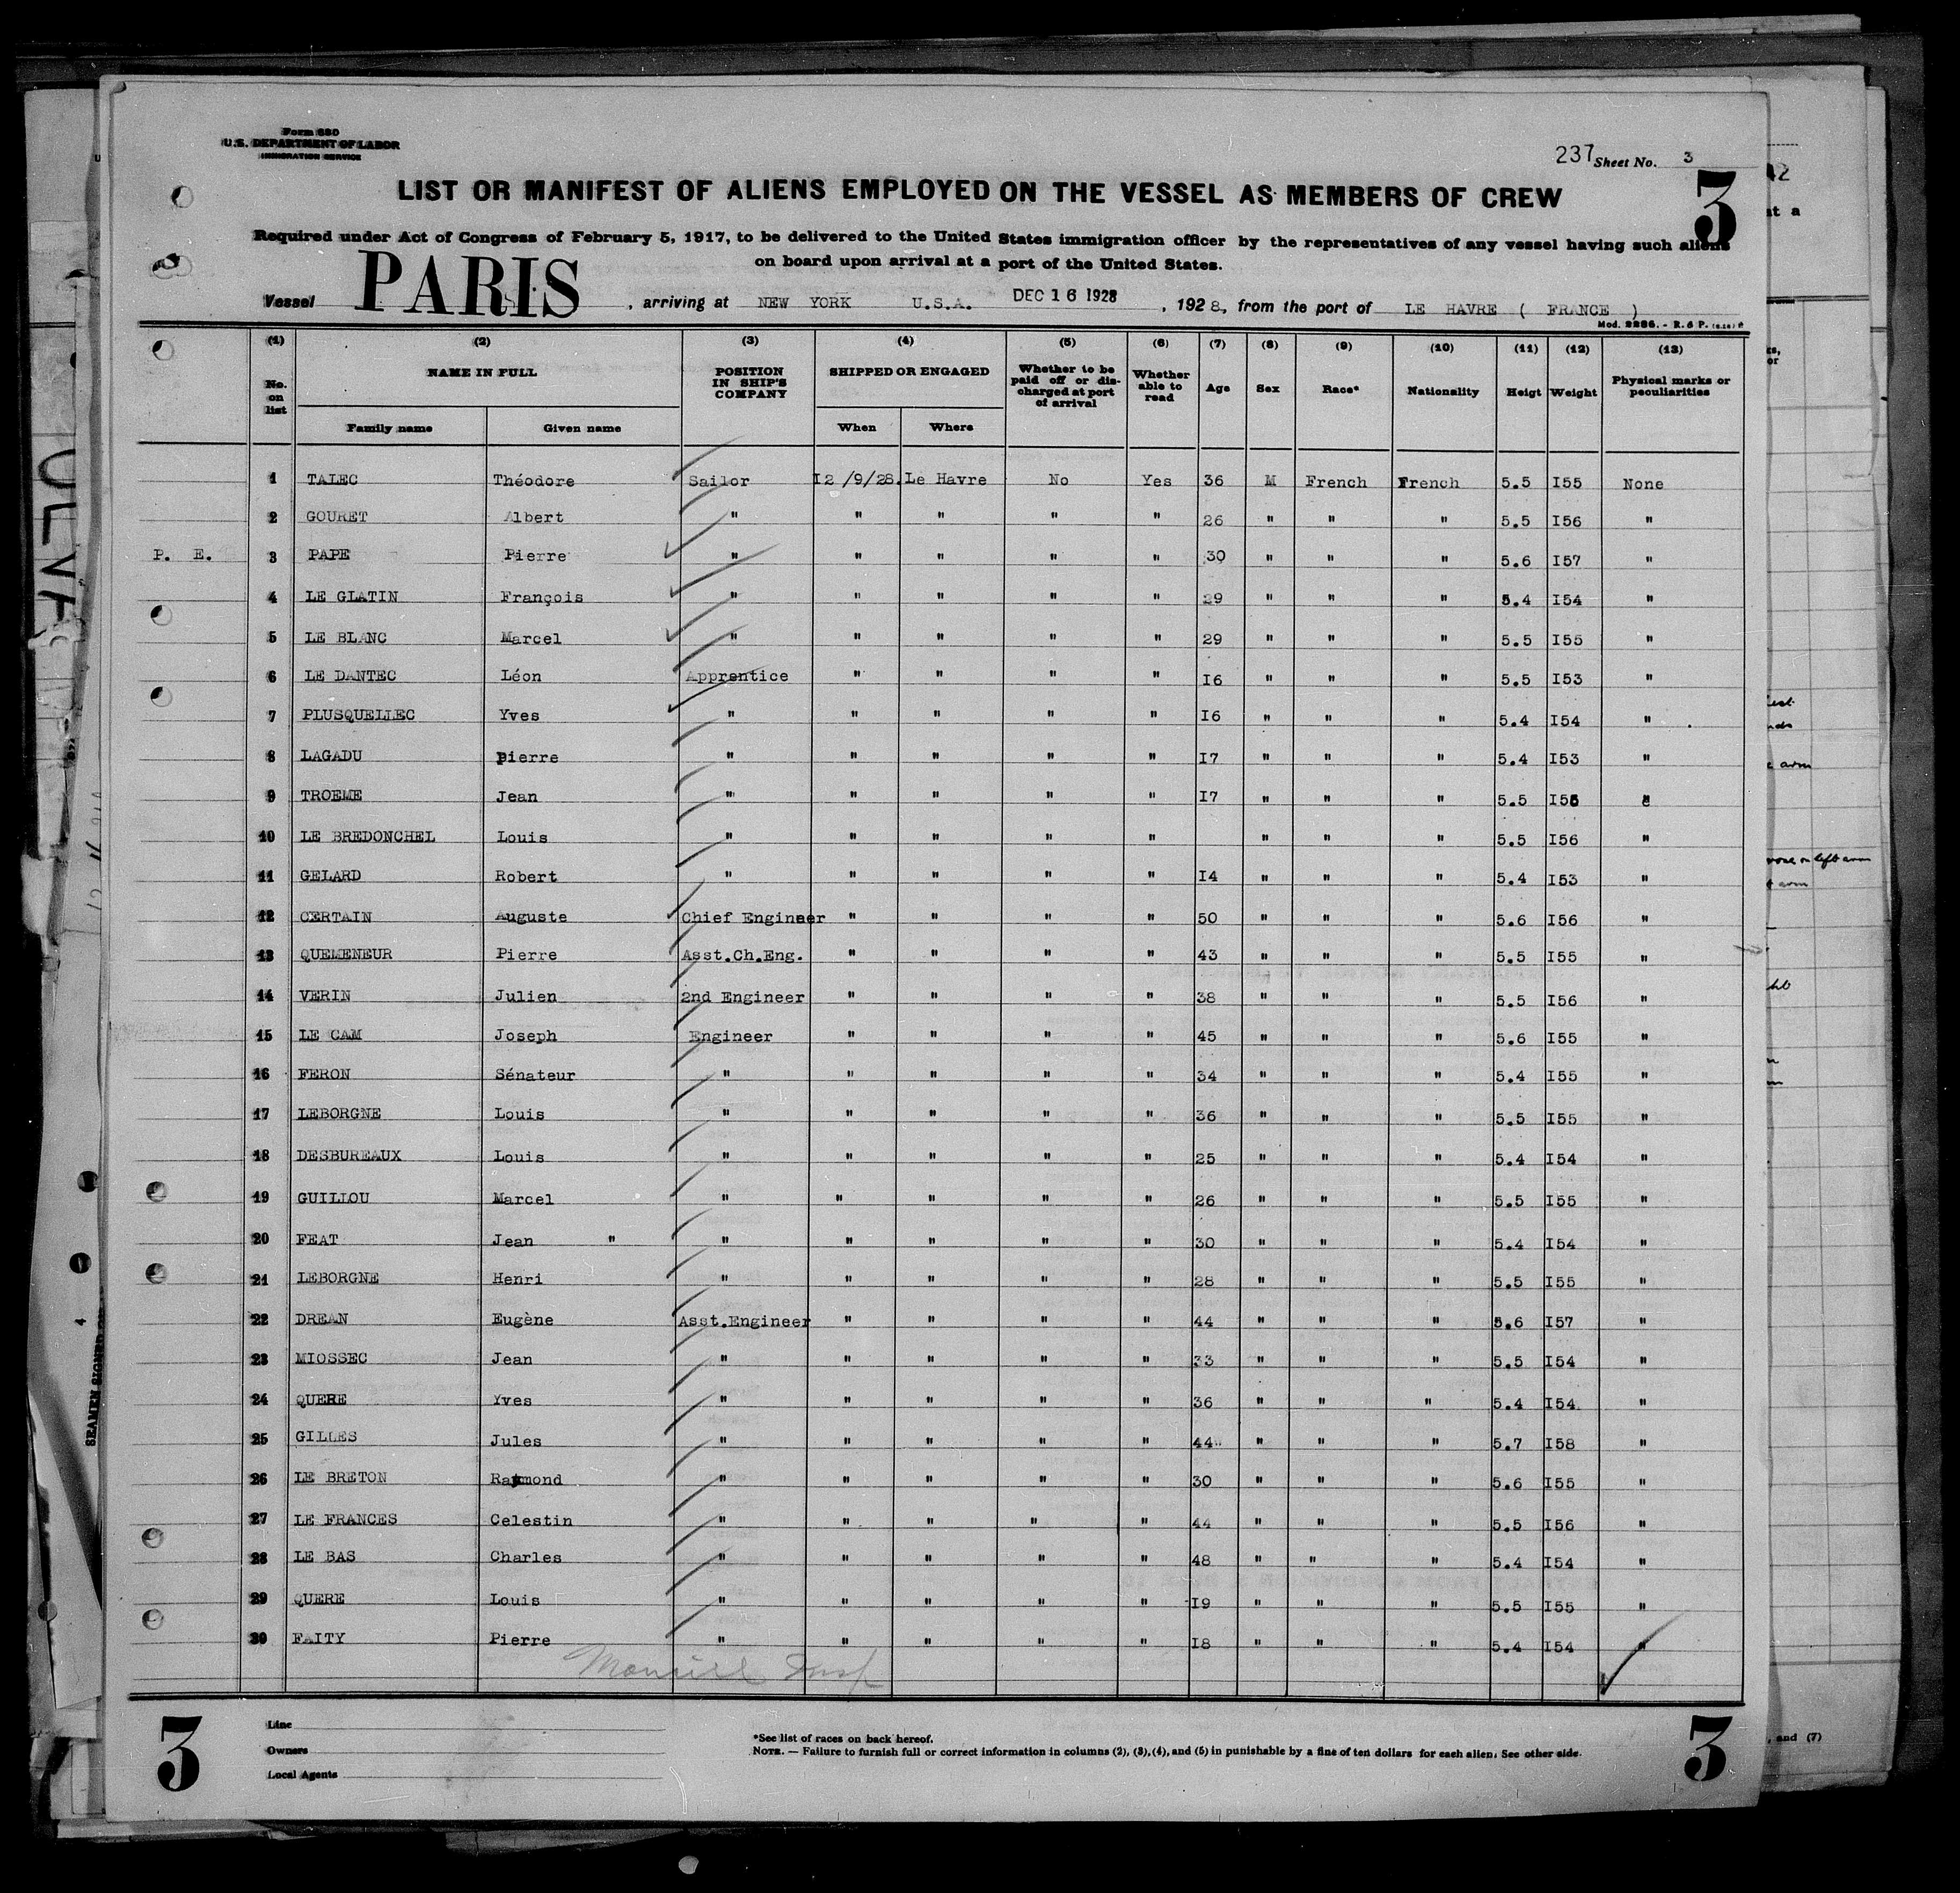 Form 680
U.S. DEPARTMENT OF LABOR
IMMIGRATION SERVICE
237 Sheet No. 3
3
LIST OR MANIFEST OF ALIENS EMPLOYED ON THE VESSEL AS MEMBERS OF CREW
Required under Act of Congress of February 5, 1917, to be delivered to the United States immigration officer by the representatives of any vessel having such aliens
on board upon arrival at a port of the United States.
Vessel PARIS, arriving at NEW YORK U.S.A. DEC 16 1928, 1928, from the port of LE HAVRE ( FRANCE )
Mod. 2286. - R. 6 P.
(1) (2) (3) (4) (5) (6) (7) (8) (9) (10) (11) (12) (13)
No. on list NAME IN FULL POSITION IN SHIP'S COMPANY SHIPPED OR ENGAGED Whether to be paid off or discharged at port of arrival Whether able to read Age Sex Race* Nationality Heigt Weight Physical marks or peculiarities
Family name Given name When Where
1 TALEC Théodore Sailor I2 /9/28. Le Havre No Yes 36 M French French 5.5 I55 None
2 GOURET Albert " " " " " 26 " " " 5.5 I56 "
P. E. 3 PAPE Pierre " " " " " 30 " " " 5.6 I57 "
4 LE GLATIN François " " " " " 29 " " " 5.4 I54 "
5 LE BLANC Marcel " " " " " 29 " " " 5.5 I55 "
6 LE DANTEC Léon Apprentice " " " " I6 " " " 5.5 I53 "
7 PLUSQUELLEC Yves " " " " " I6 " " " 5.4 I54 "
8 LAGADU Pierre " " " " " I7 " " " 5.4 I53 "
9 TROEME Jean " " " " " I7 " " " 5.5 "
10 LE BREDONCHEL Louis " " " " " " " " 5.5 I56 "
11 GELARD Robert " " " " " I4 " " " 5.4 I53 "
12 CERTAIN Auguste Chief Engineer " " " " 50 " " " 5.6 I56 "
13 QUEMENEUR Pierre Asst.Ch.Eng. " " " " 43 " " " 5.5 I55 "
14 VERIN Julien 2nd Engineer " " " " 38 " " " 5.5 I56 "
15 LE CAM Joseph Engineer " " " " 45 " " " 5.6 I55 "
16 FERON Sénateur " " " " " 34 " " " 5.4 I55 "
17 LEBORGNE Louis " " " " " 36 " " " 5.5 I55 "
18 DESBUREAUX Louis " " " " " 25 " " " 5.4 I54 "
19 GUILLOU Marcel " " " " " 26 " " " 5.5 I55 "
20 FEAT Jean " " " " " " 30 " " " 5.4 I54 "
21 LEBORGNE Henri " " " " " 28 " " " 5.5 I55 "
22 DREAN Eugène Asst.Engineer " " " " 44 " " " 5.6 I57 "
23 MIOSSEC Jean " " " " " 33 " " " 5.5 I54 "
24 QUERE Yves " " " " " 36 " " " 5.4 I54 "
25 GILLES Jules " " " " " 44 " " " 5.7 I58 "
26 LE BRETON Raymond " " " " " 30 " " " 5.6 I55 "
27 LE FRANCES Celestin " " " " " 44 " " " 5.5 I56 "
28 LE BAS Charles " " " " " 48 " " " 5.4 I54 "
29 QUERE Louis " " " " " I9 " " " 5.5 I55 "
30 FAITY Pierre " " " " " I8 " " " 5.4 I54 "
3
Line
Owners
Local Agents
*See list of races on back hereof.
NOTE. — Failure to furnish full or correct information in columns (2), (3), (4), and (5) in punishable by a fine of ten dollars for each alien. See other side.
3
, and (7)